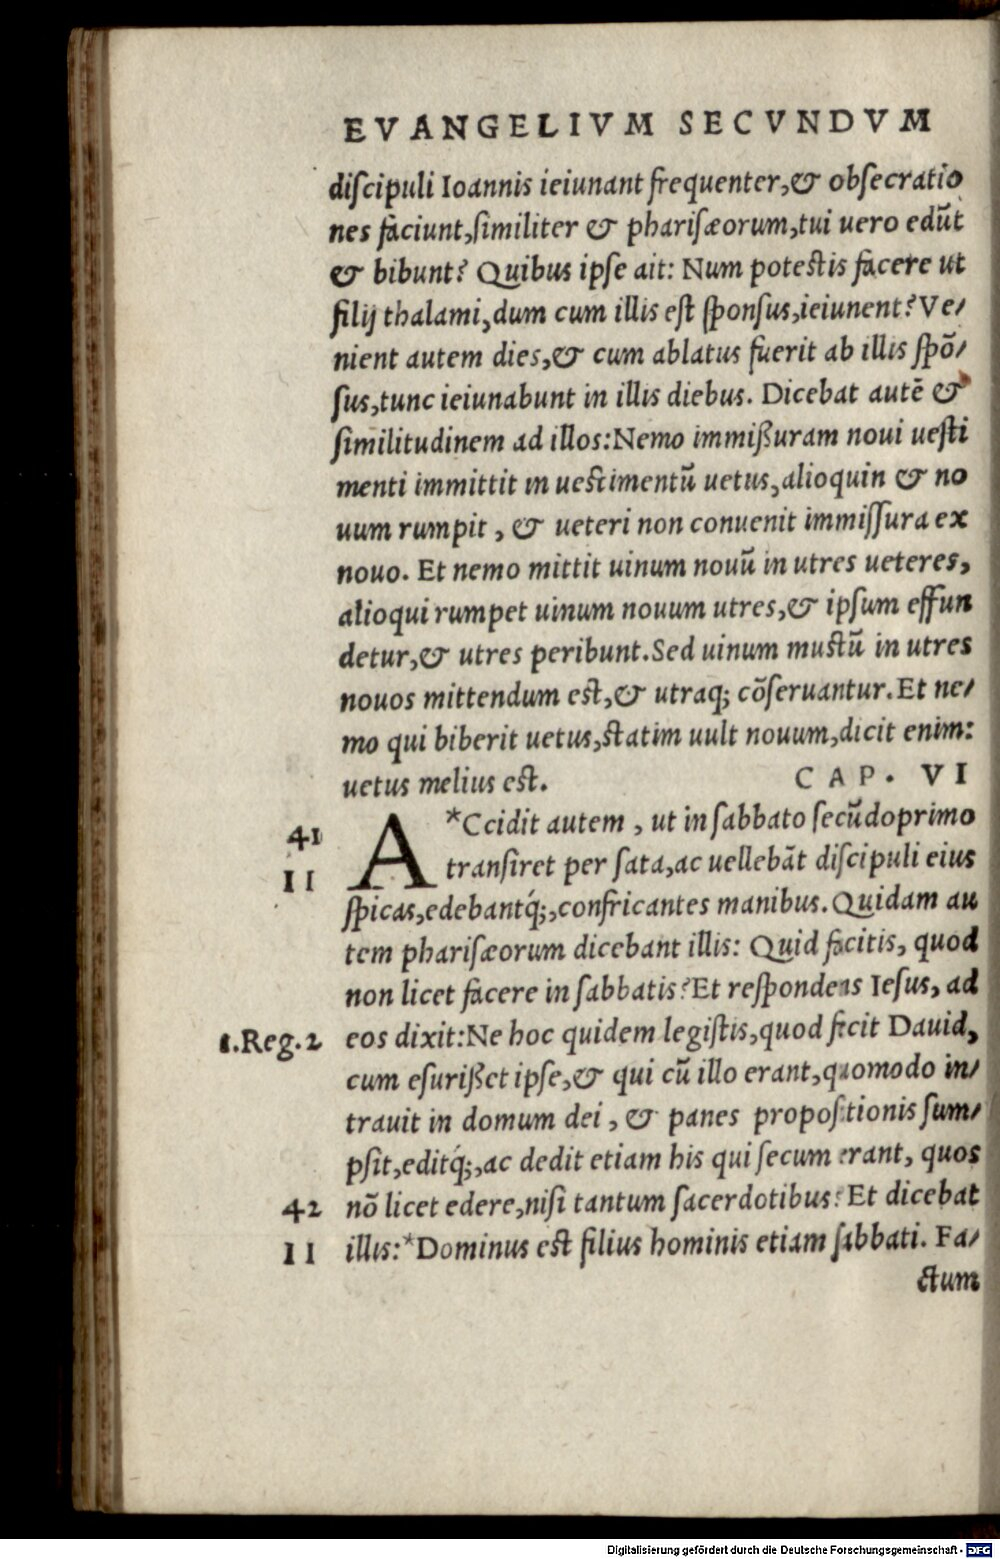 EVANGELIVM SECVNDVM
diſcipuli Ioannis ieiunant frequenter,& obſecratio
nes faciunt,ſimiliter & phariſæorum,tui uero edūt
& bibunt? Quibus ipſe ait: Num poteſtis facere ut
filij thalami,dum cum illis eſt ſponſus,ieiunent? Ve/
nient autem dies,& cum ablatus fuerit ab illis ſpō/
ſus,tunc ieiunabunt in illis diebus. Dicebat autē &
ſimilitudinem ad illos:Nemo immißuram noui ueſti
menti immittit in ueſtimentū uetus,alioquin & no
uum rumpit , & ueteri non conuenit immiſſura ex
nouo. Et nemo mittit uinum nouū in utres ueteres,
alioqui rumpet uinum nouum utres,& ipſum effun
detur,& utres peribunt.Sed uinum muſtū in utres
nouos mittendum eſt,& utraq; cōſeruantur.Et ne/
mo qui biberit uetus,ſtatim uult nouum,dicit enim:
uetus melius eſt.
CAP. VI
41
11
A*Ccidit autem , ut in ſabbato ſecūdoprimo
tranſiret per ſata,ac uellebāt diſcipuli eius
ſpicas,edebantq́;,confricantes manibus.Quidam au
tem phariſæorum dicebant illis: Quid facitis, quod
non licet facere in ſabbatis?Et reſpondens Ieſus, ad
1.Reg.2
eos dixit:Ne hoc quidem legiſtis,quod fecit Dauid,
cum eſurißet ipſe,& qui cū illo erant,quomodo in/
trauit in domum dei , & panes propoſitionis ſum/
pſit,editq́;,ac dedit etiam his qui ſecum erant, quos
42
nō licet edere,niſi tantum ſacerdotibus? Et dicebat
11
illis:*Dominus eſt filius hominis etiam ſabbati. Fa/
ctum
Digitalisierung gefördert durch die Deutsche Forschungsgemeinschaft - DFG